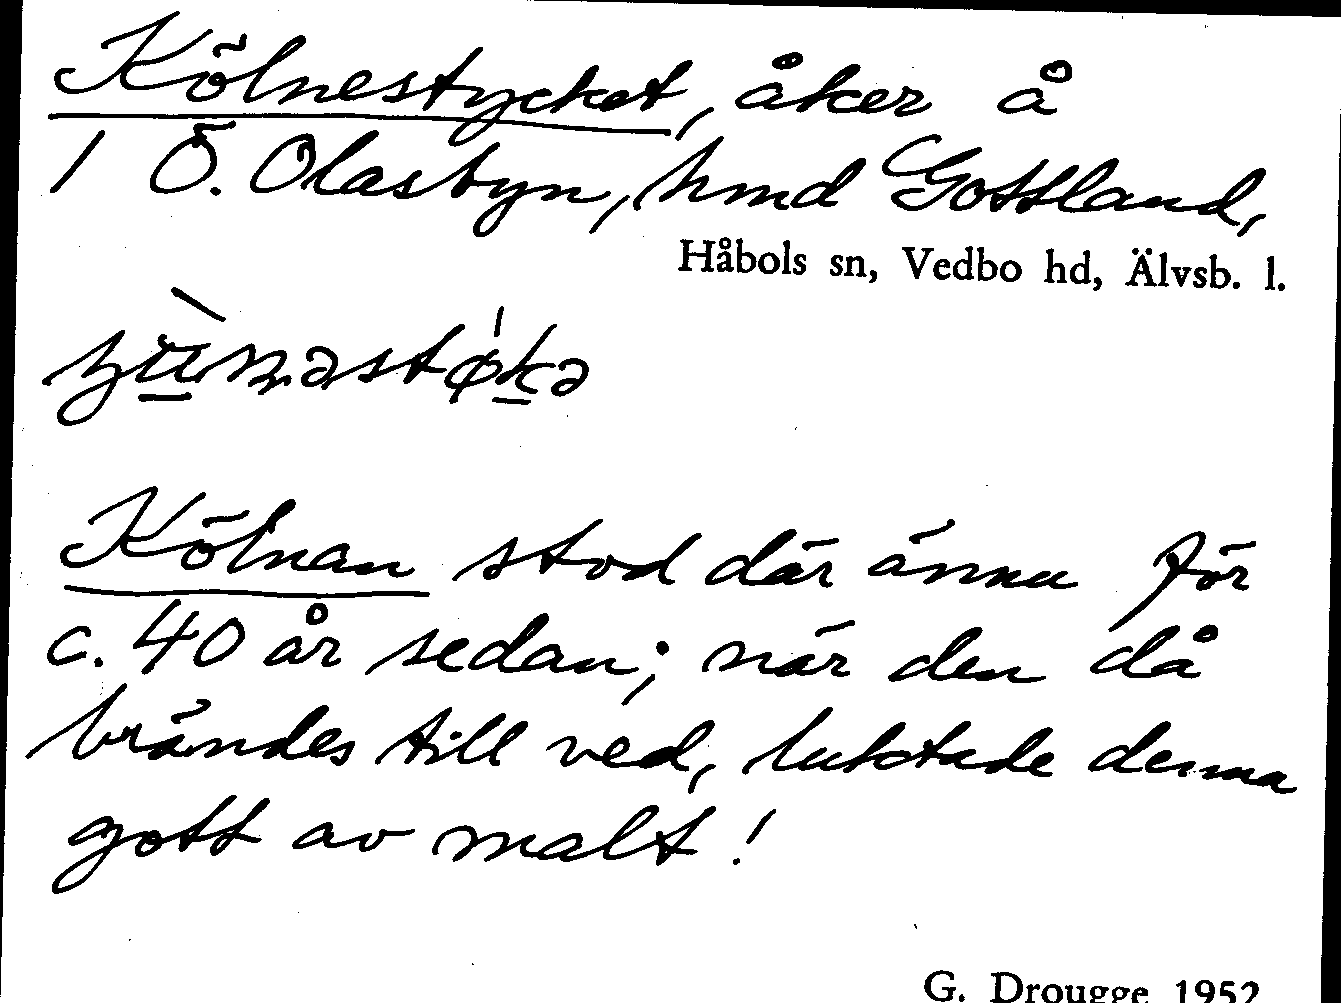 Kölnestycket, åker å
1 Ö. Olasbyn, hmd Gottland,
Håbols sn, Vedbo hd, Älvsb. l.
Kölnan stod där ännu för
c. 40 år sedan; när den då
brändes till ved, luktade denna
gott av malt!
G. Drougge 1952